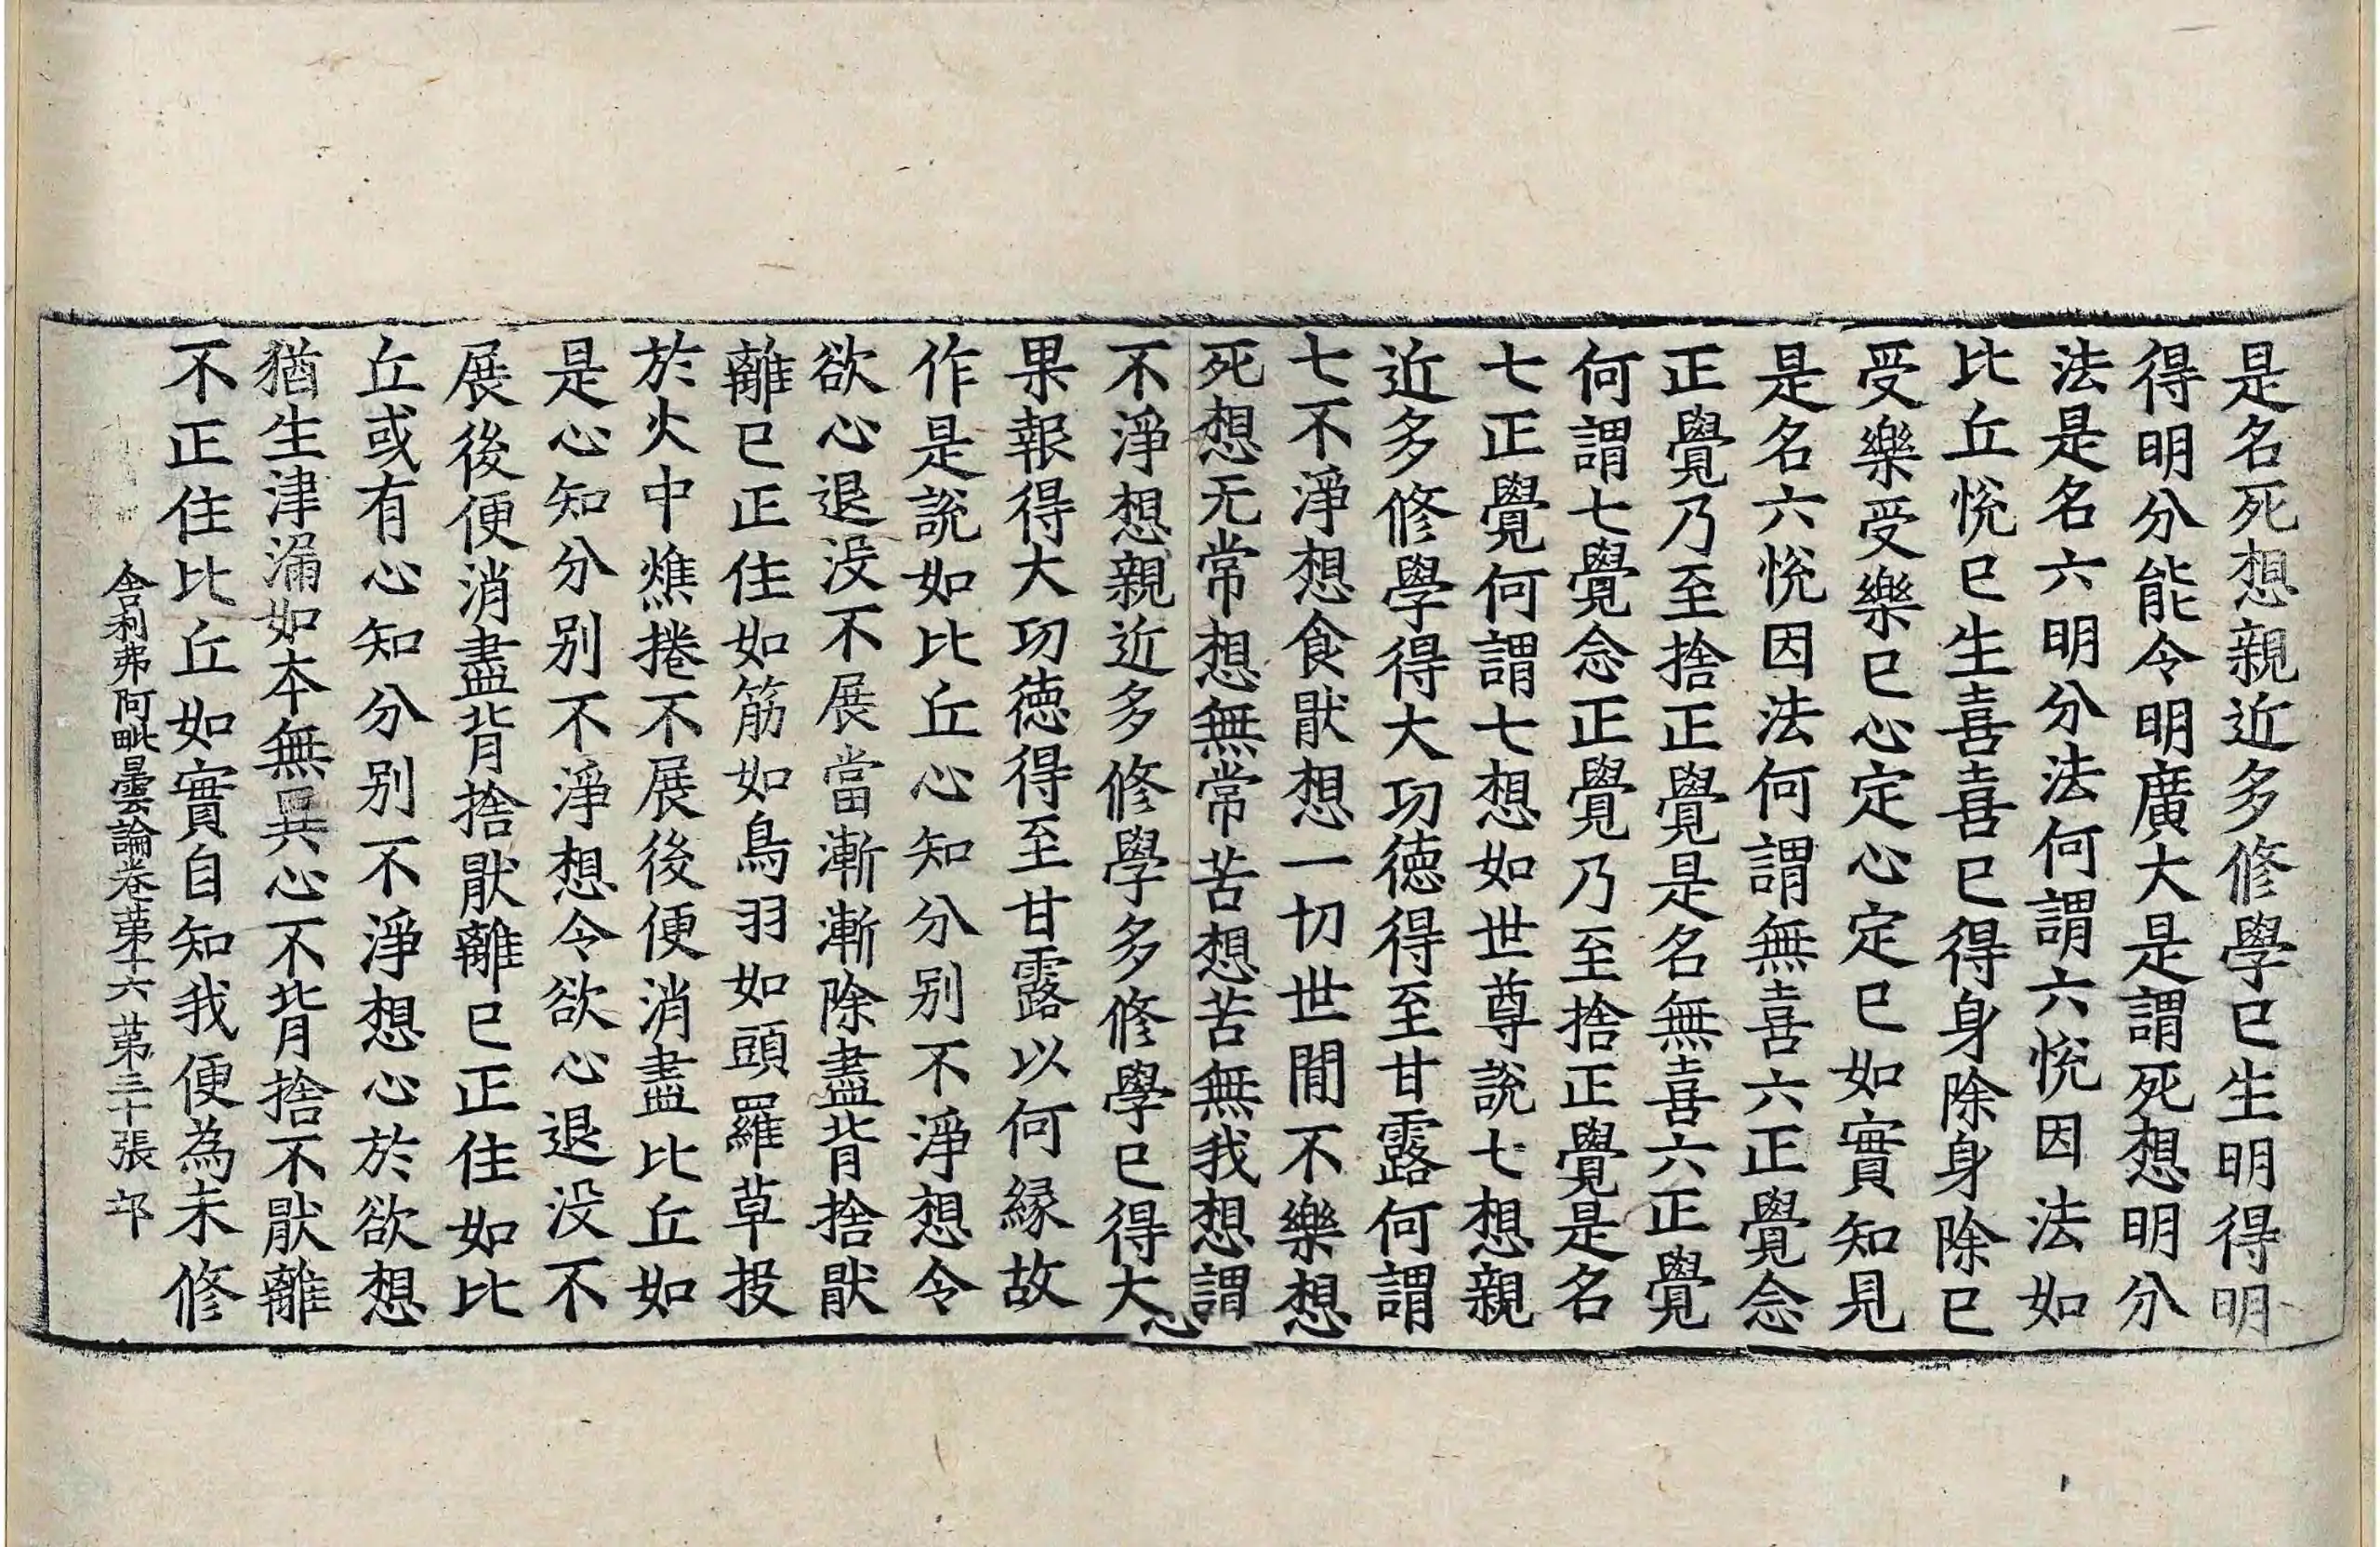 是名死想親近多修學已生明得明
得明分能令明廣大是謂死想明分
法是名六明分法何謂六悅因法如
比丘悅已生喜喜已得身除身除已
受樂受樂已心定心定已如實知見
是名六悅因法何謂無喜六正覺念
正覺乃至捨正覺是名無喜六正覺
何謂七覺念正覺乃至捨正覺是名
七正覺何謂七想如世尊說七想親
近多修學得大功德得至甘露何謂
七不淨想食猒想一切世間不樂想
死想无常想無常苦想苦無我想謂
不淨想親近多修學多修學已得大
果報得大功德得至甘露以何緣故
作是說如比丘心知分別不淨想令
欲心退没不展當漸漸除盡背捨猒
離已正住如筋如鳥羽如頭羅草投
於火中燋捲不展後便消盡比丘如
是心知分別不淨想令欲心退没不
展後便消盡背捨猒離已正住如比
丘或有心知分別不淨想心於欲想
猶生津漏如本無異心不背捨不猒離
不正住比丘如實自知我便為未修
舍利弗阿毗曇論卷苐十六 苐三十張